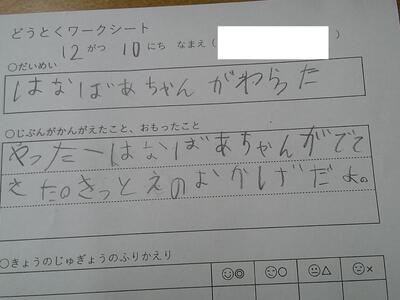 どうとくワークシート
12がつ10にち なまえ( )
○だいめい
はなばあちゃんがわらった
○じぶんがかんがえたこと、おもったこと
やったーはなばあちゃんがでて
きた。きっとえのおかげだよ。
○きょうのじゅぎょうのふりかえり
☺◎ ☺○ 😐△ ☹×